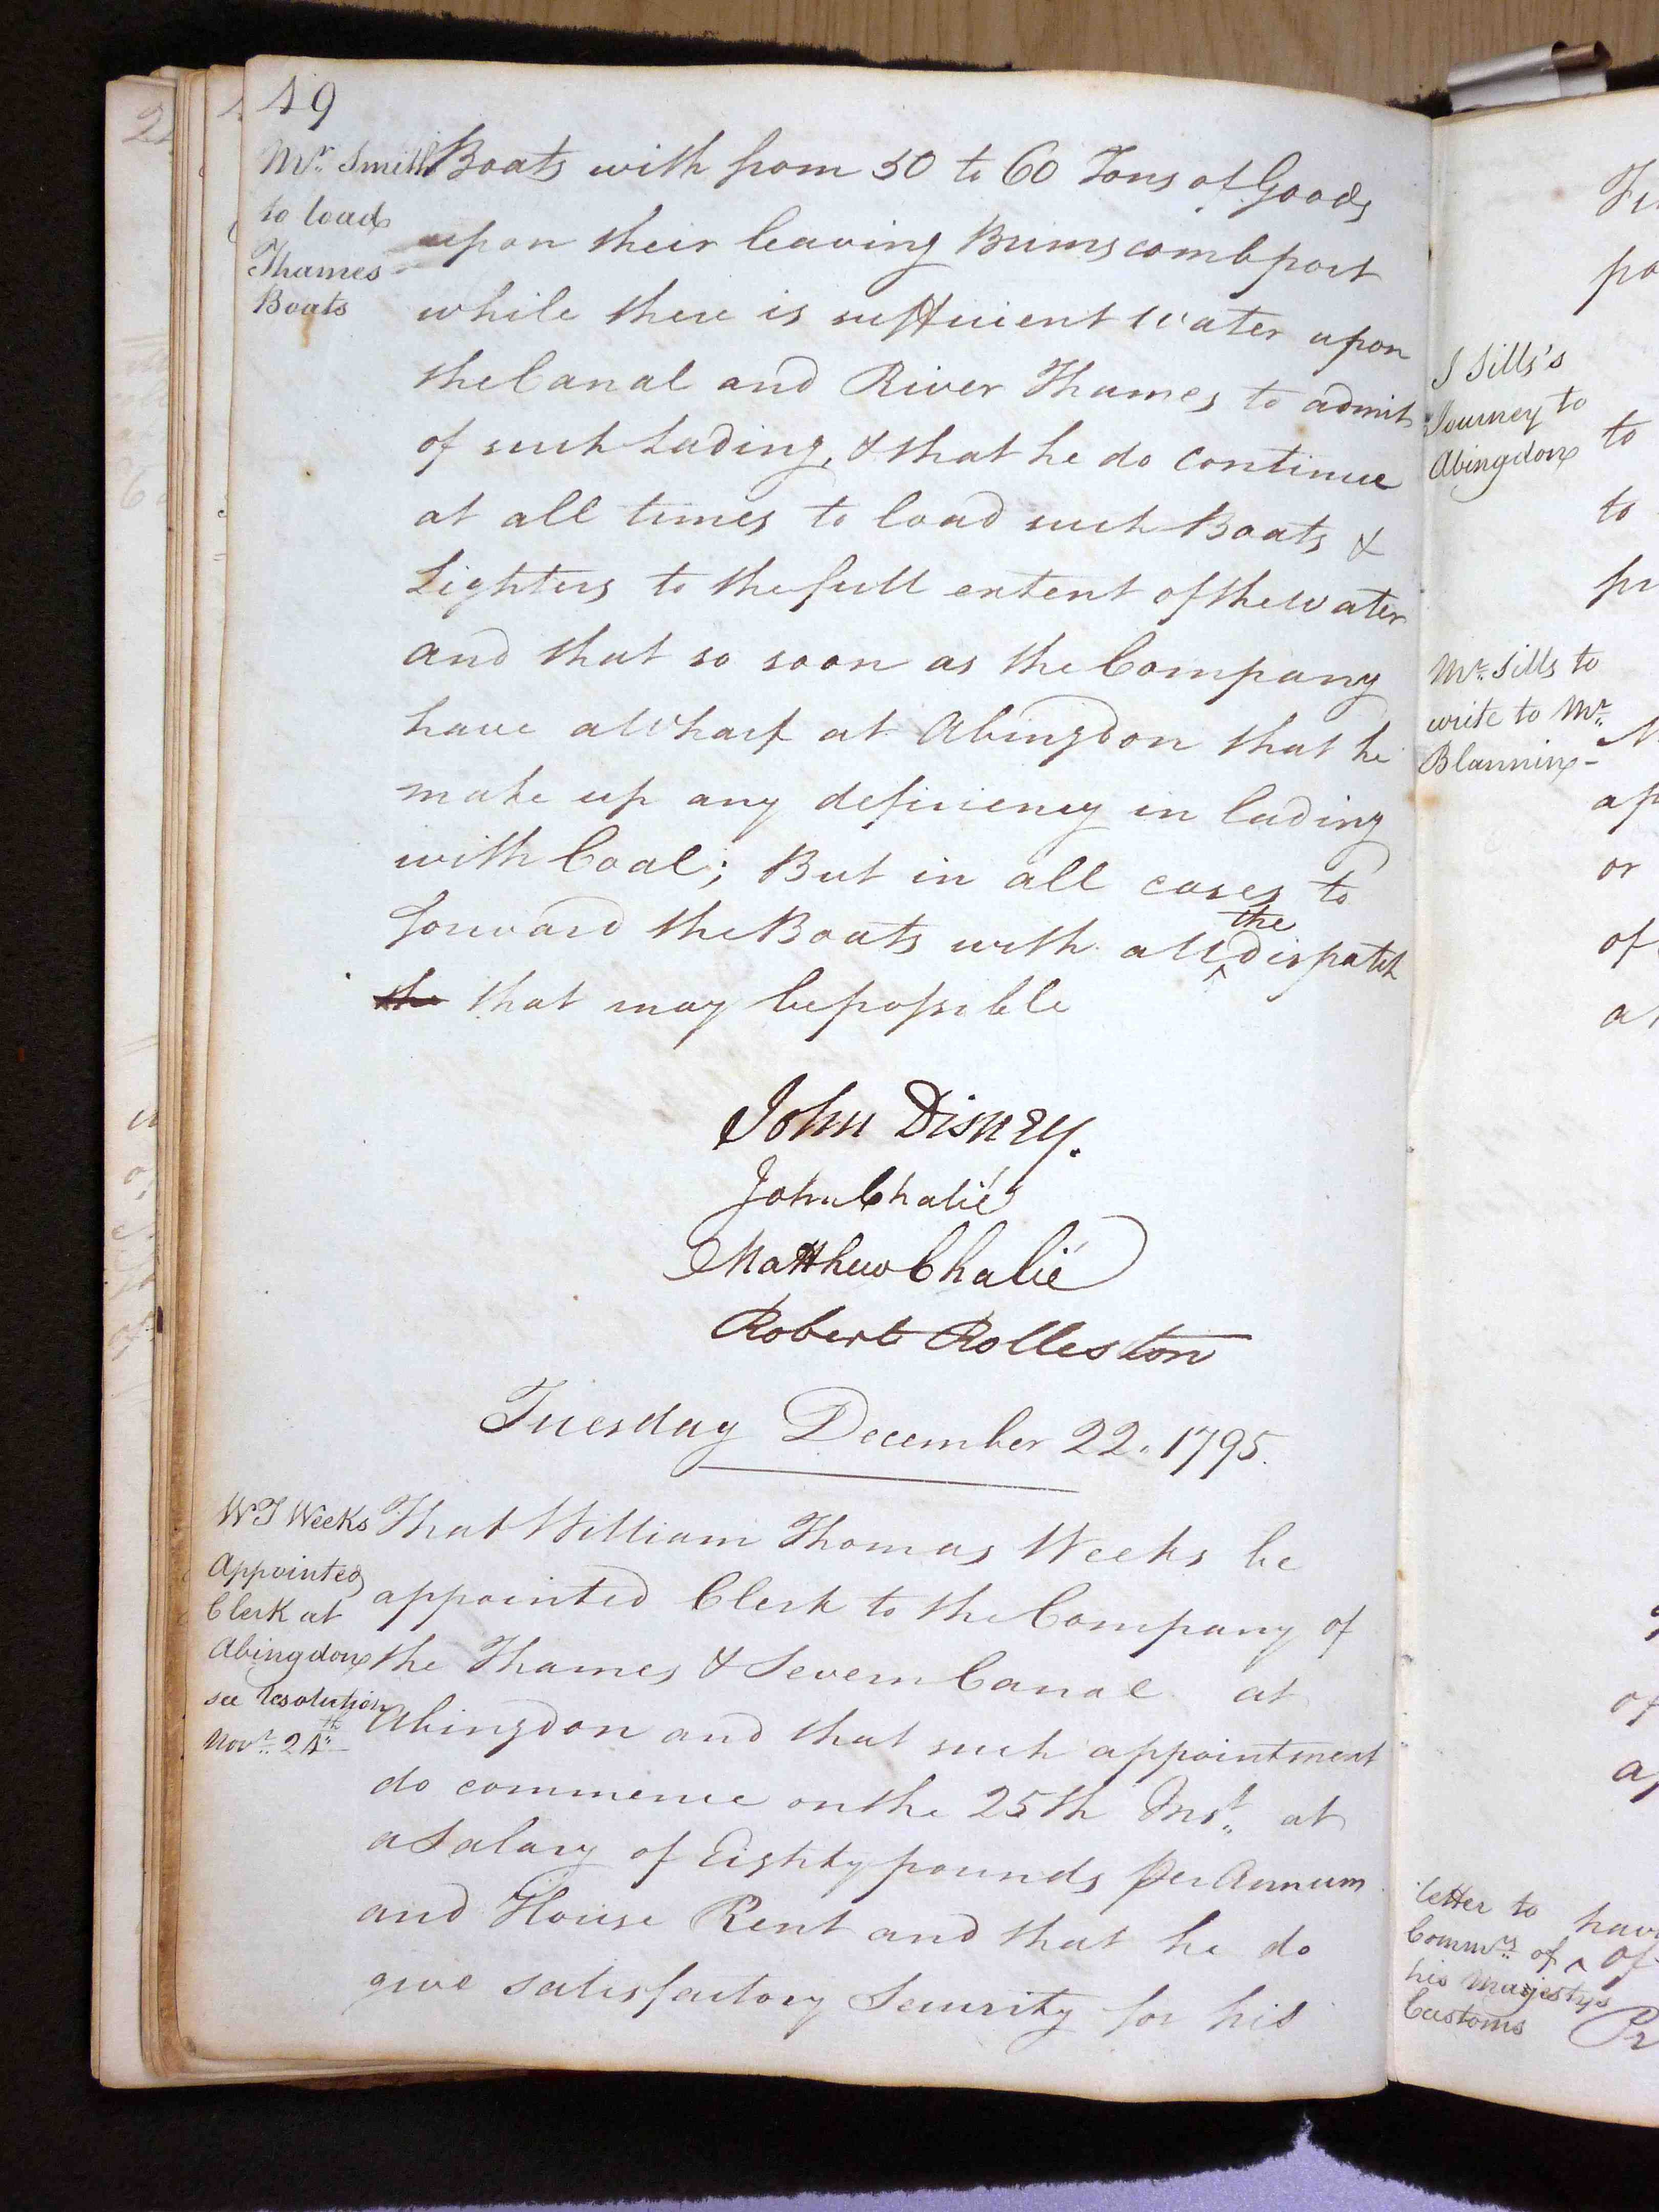 49
Mr. Smith
to load
Thames
Boats
Boats with from 50 to 60 Tons of Goods
upon their leaving Brimscombport
while there is sufficient Water upon
the Canal and River Thames to admit
of such Lading, & that he do continue
at all times to load such Boats &
Lighters to the full extent of the Water
and that so soon as the Company
have a Wharf at Abingdon that he
make up any deficiency in lading
with Coal; But in all cases to
forward the Boats with all the dispatch
the that may be possible
John Disney.
John Chalié
Matthew Chalié
Robert Rolleston
Tuesday December 22. 1795.
W T Weeks
Appointed
Clerk at
Abingdon
see resolution
Novr. 24th
That William Thomas Weeks be
appointed Clerk to the Company of
the Thames & Severn Canal at
Abingdon and that such appointment
do commence on the 25th Inst. at
a Salary of Eighty pounds Per Annum
and House Rent and that he do
give satisfactory Security for his
J Sills's
Journey to
Abingdon
to
to
Mr. Sills to
write to Mr.
Blannin-
or
of
letter to
Commrs. of
his Majestys
Customs